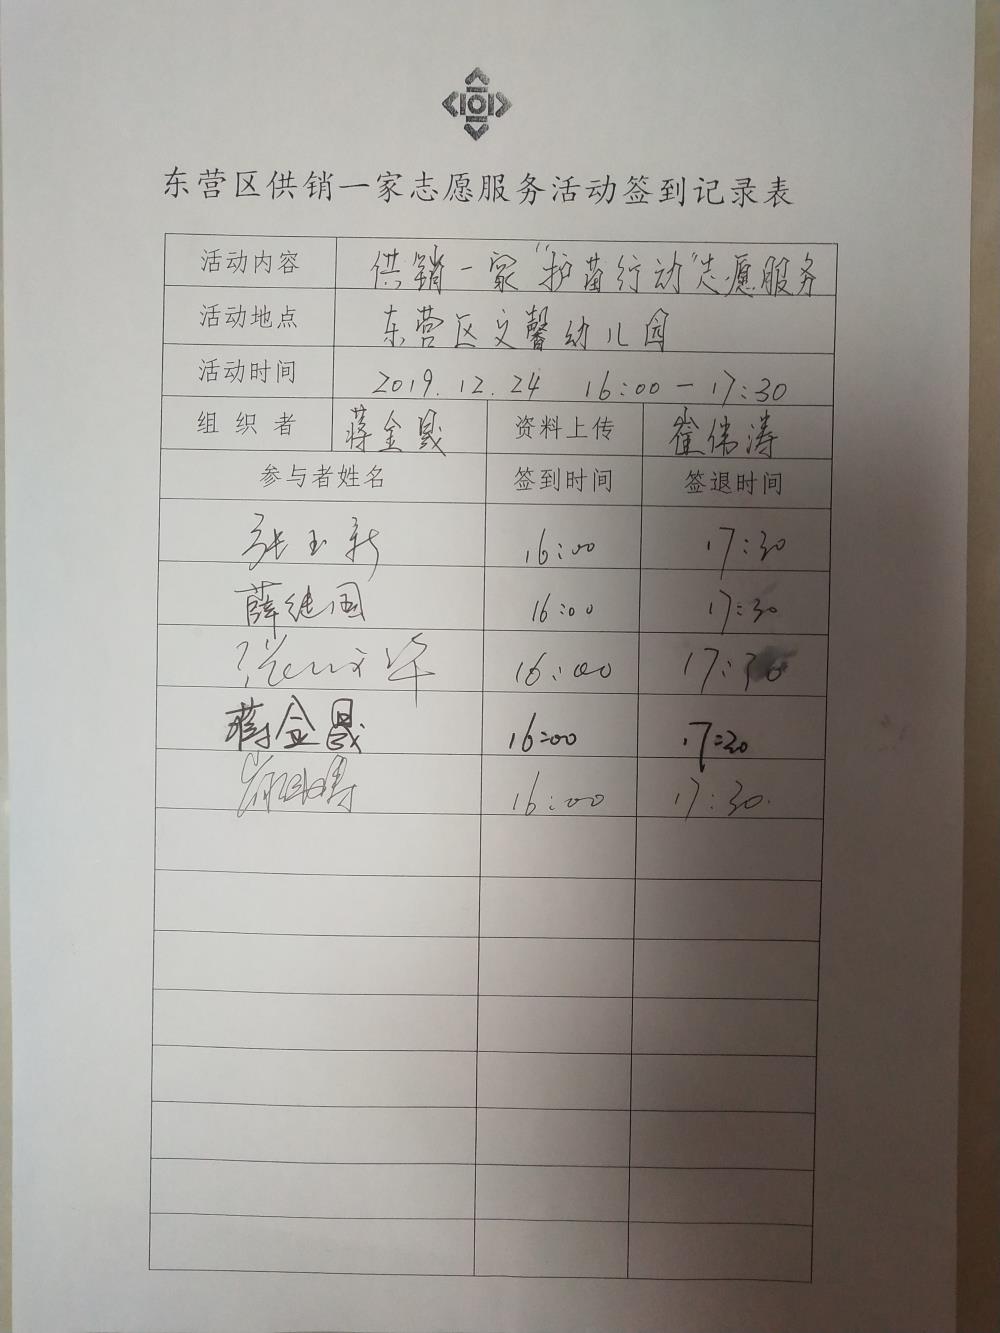 东营区供销一家志愿服务活动签到记录表
活动内容 供销一家“护苗行动”志愿服务
活动地点 东营区文馨幼儿园
活动时间 2019.12.24 16:00-17:30
组织者 蒋金晟 资料上传 崔伟涛
参与者姓名 签到时间 签退时间
张玉新 16:00 17:30
薛继国 16:00 17:30
16:00 17:30
蒋金晟 16:00 17:30
16:00 17:30.